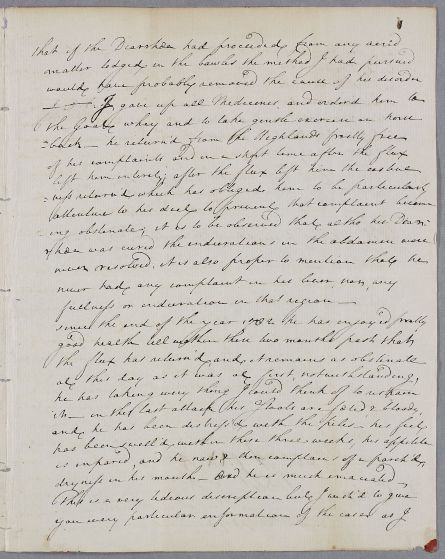 that if the Diarrhœa had proceeded from any acrid
matter lodged in the bowels the method I had pursued
would have probably removed the cause of his disorder
I gave up all Medicines, and orderd him to
the Goat whey and to take gentle exercise on horse
back — he return'd from the Highlands pretty free
of his complaints and in a short time after the flux
left him intirely; after the flux left him the costive
=ness returnd which has obliged him to be particularly
attentive to his diet to prevent that complaint becom
=ing obstinate; it is to be observed that, altho his Diarr
=hœa was cured the indurations in the abdomen were
never resolved, it is also proper to mention that, he
never had any complaint in his liver nor any
fullness or induration in that region —
since the end of the year 1782 he has enjoy'd pretty
good health till within these two months past that
the flux has returnd and it remains as obstinate
at this day as it was at first, notwithstanding,
he has taken every thing I could think of to restrain
it — in this last attack his stools are fœtid & bloody,
and he has been distress'd with the piles — his feet
has been swell'd within these three weeks, his appetite
is impaird, and he now & then complains of a parch'd
dryness in his mouth — and he is much emaciated
This is a very tedious description but I wish'd to give
you every particular information of the case as I